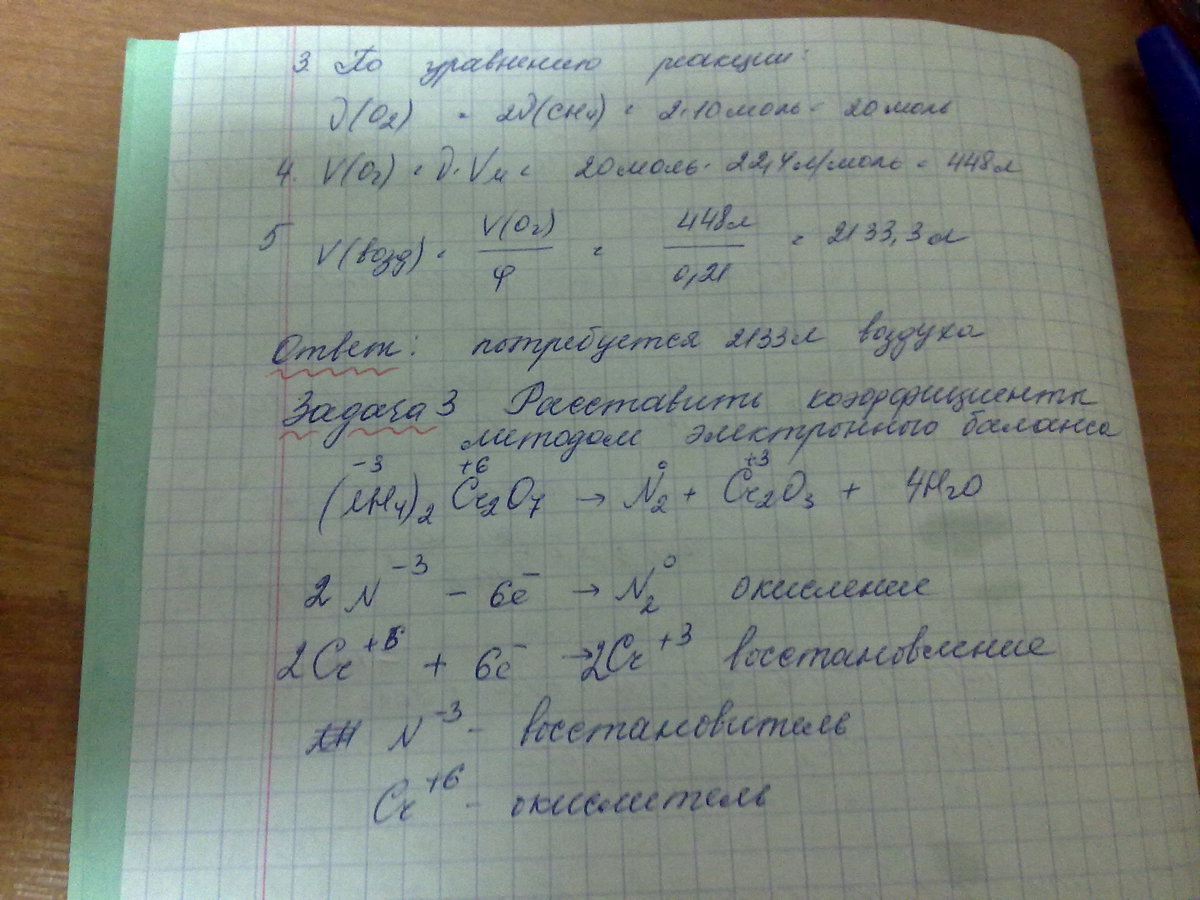 3. По уравнению реакции:
ν(O₂) = 2ν(CH₄) = 2·10моль = 20моль
4. V(O₂) = ν·Vм = 20моль·22,4л/моль = 448л
5 V(возд) = V(O₂)/φ = 448л/0,21 = 2133,3л
Ответ: потребуется 2133л воздуха
Задача 3 Расставить коэффициенты
методом электронного баланса
(N⁻³H₄)₂Cr⁺⁶₂O₇ → N⁰₂ + Cr⁺³₂O₃ + 4H₂O
2N⁻³ - 6e⁻ → N₂⁰ окисление
2Cr⁺⁶ + 6e⁻ → 2Cr⁺³ восстановление
N⁻³ - восстановитель
Cr⁺⁶ - окислитель